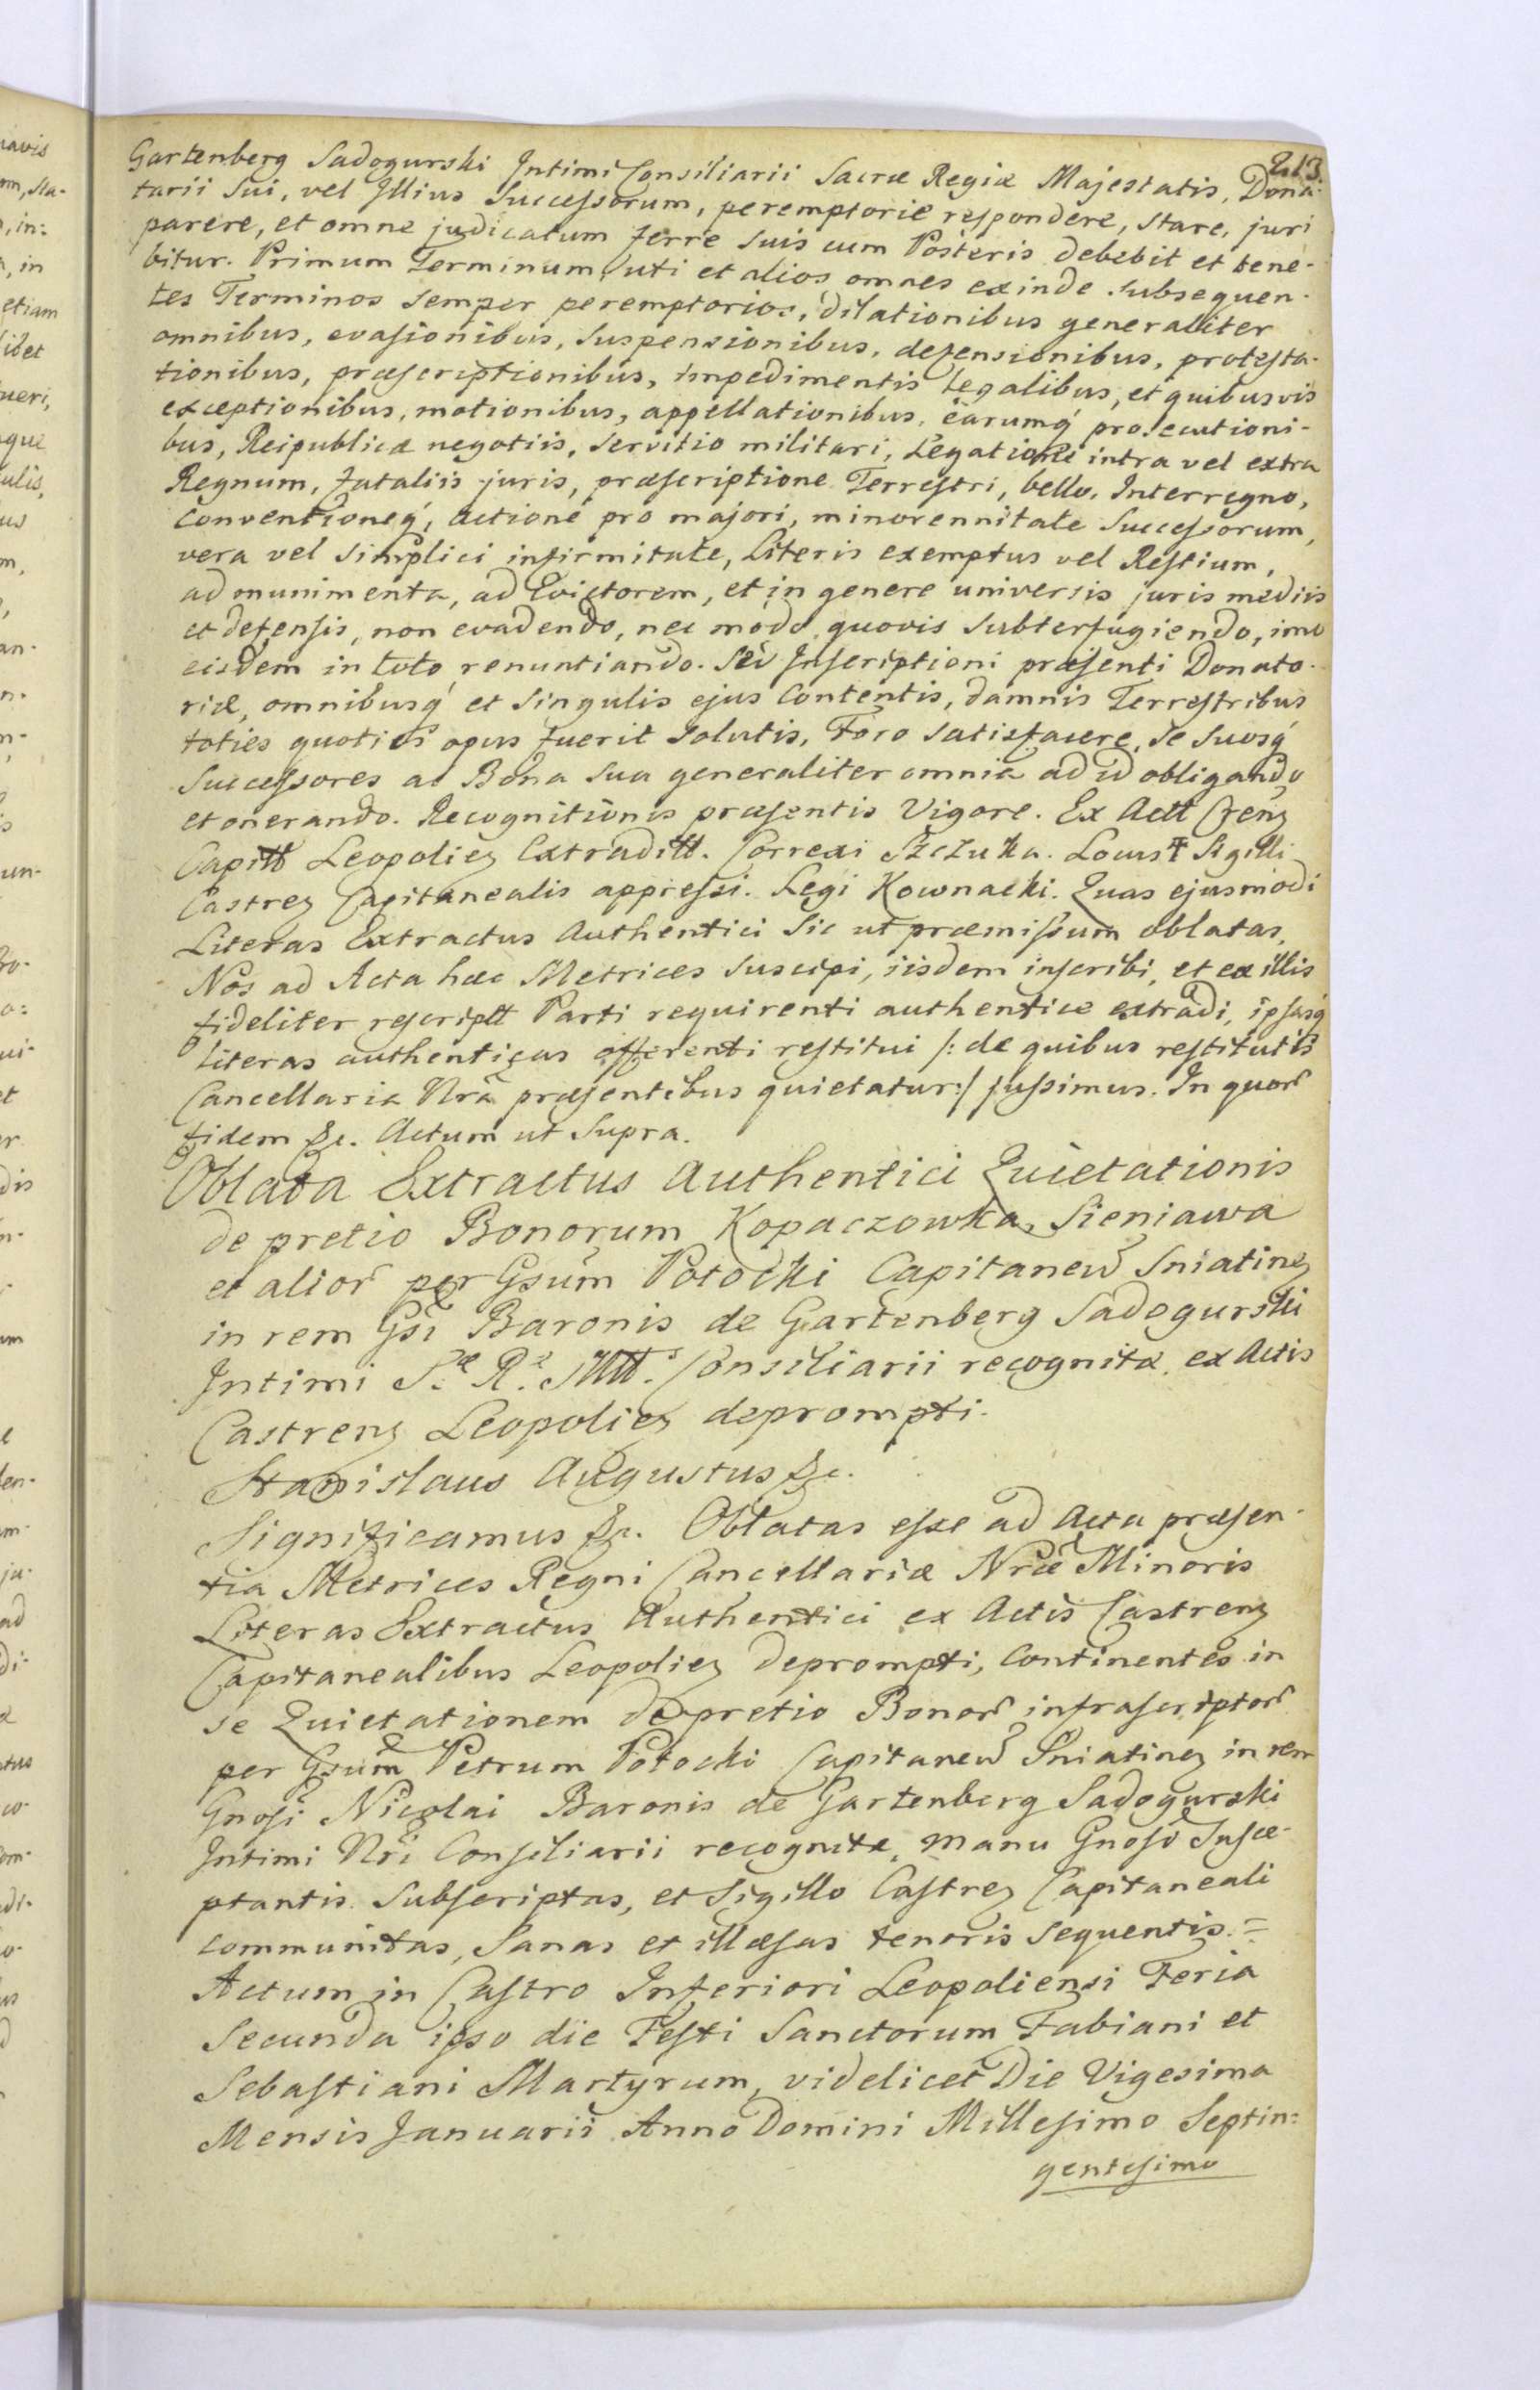 213.
Gartenberg Sadogurski Intimi Consiliarii Sacræ Regiæ Majestatis, Dona-
tarii Sui, vel Illius Successorum, peremptorie respondere, stare, juri
parere, et omne judicatum ferre suis cum Posteris debebit et tene-
bitur. Primum Terminum, uti et alios omnes exinde subsequen-
tes Terminos semper peremptorios, dilationibus generaliter
omnibus, evasionibus, suspensionibus, defensionibus, protesta-
tionibus, præscriptionibus, impedimentis Legalibus, et quibusvis
exceptionibus, motionibus, appellationibus, earumq́ prosecutioni-
bus, Reipublicæ negotiis, servitio militari, Legatione intra vel extra
Regnum, fataliis juris, præscriptione Terrestri, bello, Interregno,
Conventioneq́, actione pro majori, minorennitate Successorum,
vera vel simplici infirmitate, Literis exemptus vel Restium,
ad munimenta, ad Evictorem, et in genere universis juris mediis
et defensis, non evadendo, nec modo quovis subterfugiendo, imo
eisdem in toto renuntiando. Sed Inscriptioni præsenti Donato-
riæ, omnibusq́ et singulis ejus Contentis, damnis Terrestribus
toties quoties opus fuerit solutis, Foro satisfacere, se suosq́
Successores ac Bona sua generaliter omnia ad id obligando
et onerando. Recognitionis præsentis Vigore. Ex Actt Crenz
Capitt Leopoliez Extraditt. Correxi Szczuka. Locus Sigilli
Castrez Capitanealis appressi. Legi Kownacki. Quas ejusmodi
Literas Extractus Authentici Sic ut præmissum oblatas,
Nos ad Acta hæc Metrices suscipi, iisdem inscribi, et ex illis
fideliter rescriptt Parti requirenti authentice extradi, ipsasq́
literas authenticas offerenti restitui /: de quibus restitutis
Cancellaria Nrã præsentibus quietatur :/ jussimus. In quorͬ
fidem &c. Actum ut Supra.
Oblata Extractus Authentici Quietationis
de pretio Bonorum Kopaczowka, Sieniawa
et aliorͬ per Gsum Potocki Capitaneũ Sniatinez
in rem Gsi Baronis de Gartenberg Sadogurski
Intimi S.æ R.æ Mtt.s Consiliarii recognitæ, ex Actis
Castrenz Leopoliez deprompti.
Stanislaus Augustus &c.
Significamus &c. Oblatas esse ad Acta præsen-
tia Metrices Regni Cancellariæ Nræ Minoris
Literas Extractus Authentici ex Actis Castrenz
Capitanealibus Leopoliez deprompti, Continentes in
se Quietationem de pretio Bonorͬ infrascriptorͬ
per Gsum Petrum Potocki Capitaneũ Sniatinez in rem
Gnosi Nicolai Baronis de Gartenberg Sadogurski
Intimi Nri Consiliarii recognitæ, manu Gnosi Susce-
ptantis Subscriptas, et Sigillo Castrez Capitaneali
communitas, Sanas et illæsas tenoris sequentis =
Actum in Castro Inferiori Leopoliensi Feria
Secunda ipso die Festi Sanctorum Fabiani et
Sebastiani Martyrum, videlicet Die Vigesima
Mensis Januarii Anno Domini Millesimo Septin-
gentesimo